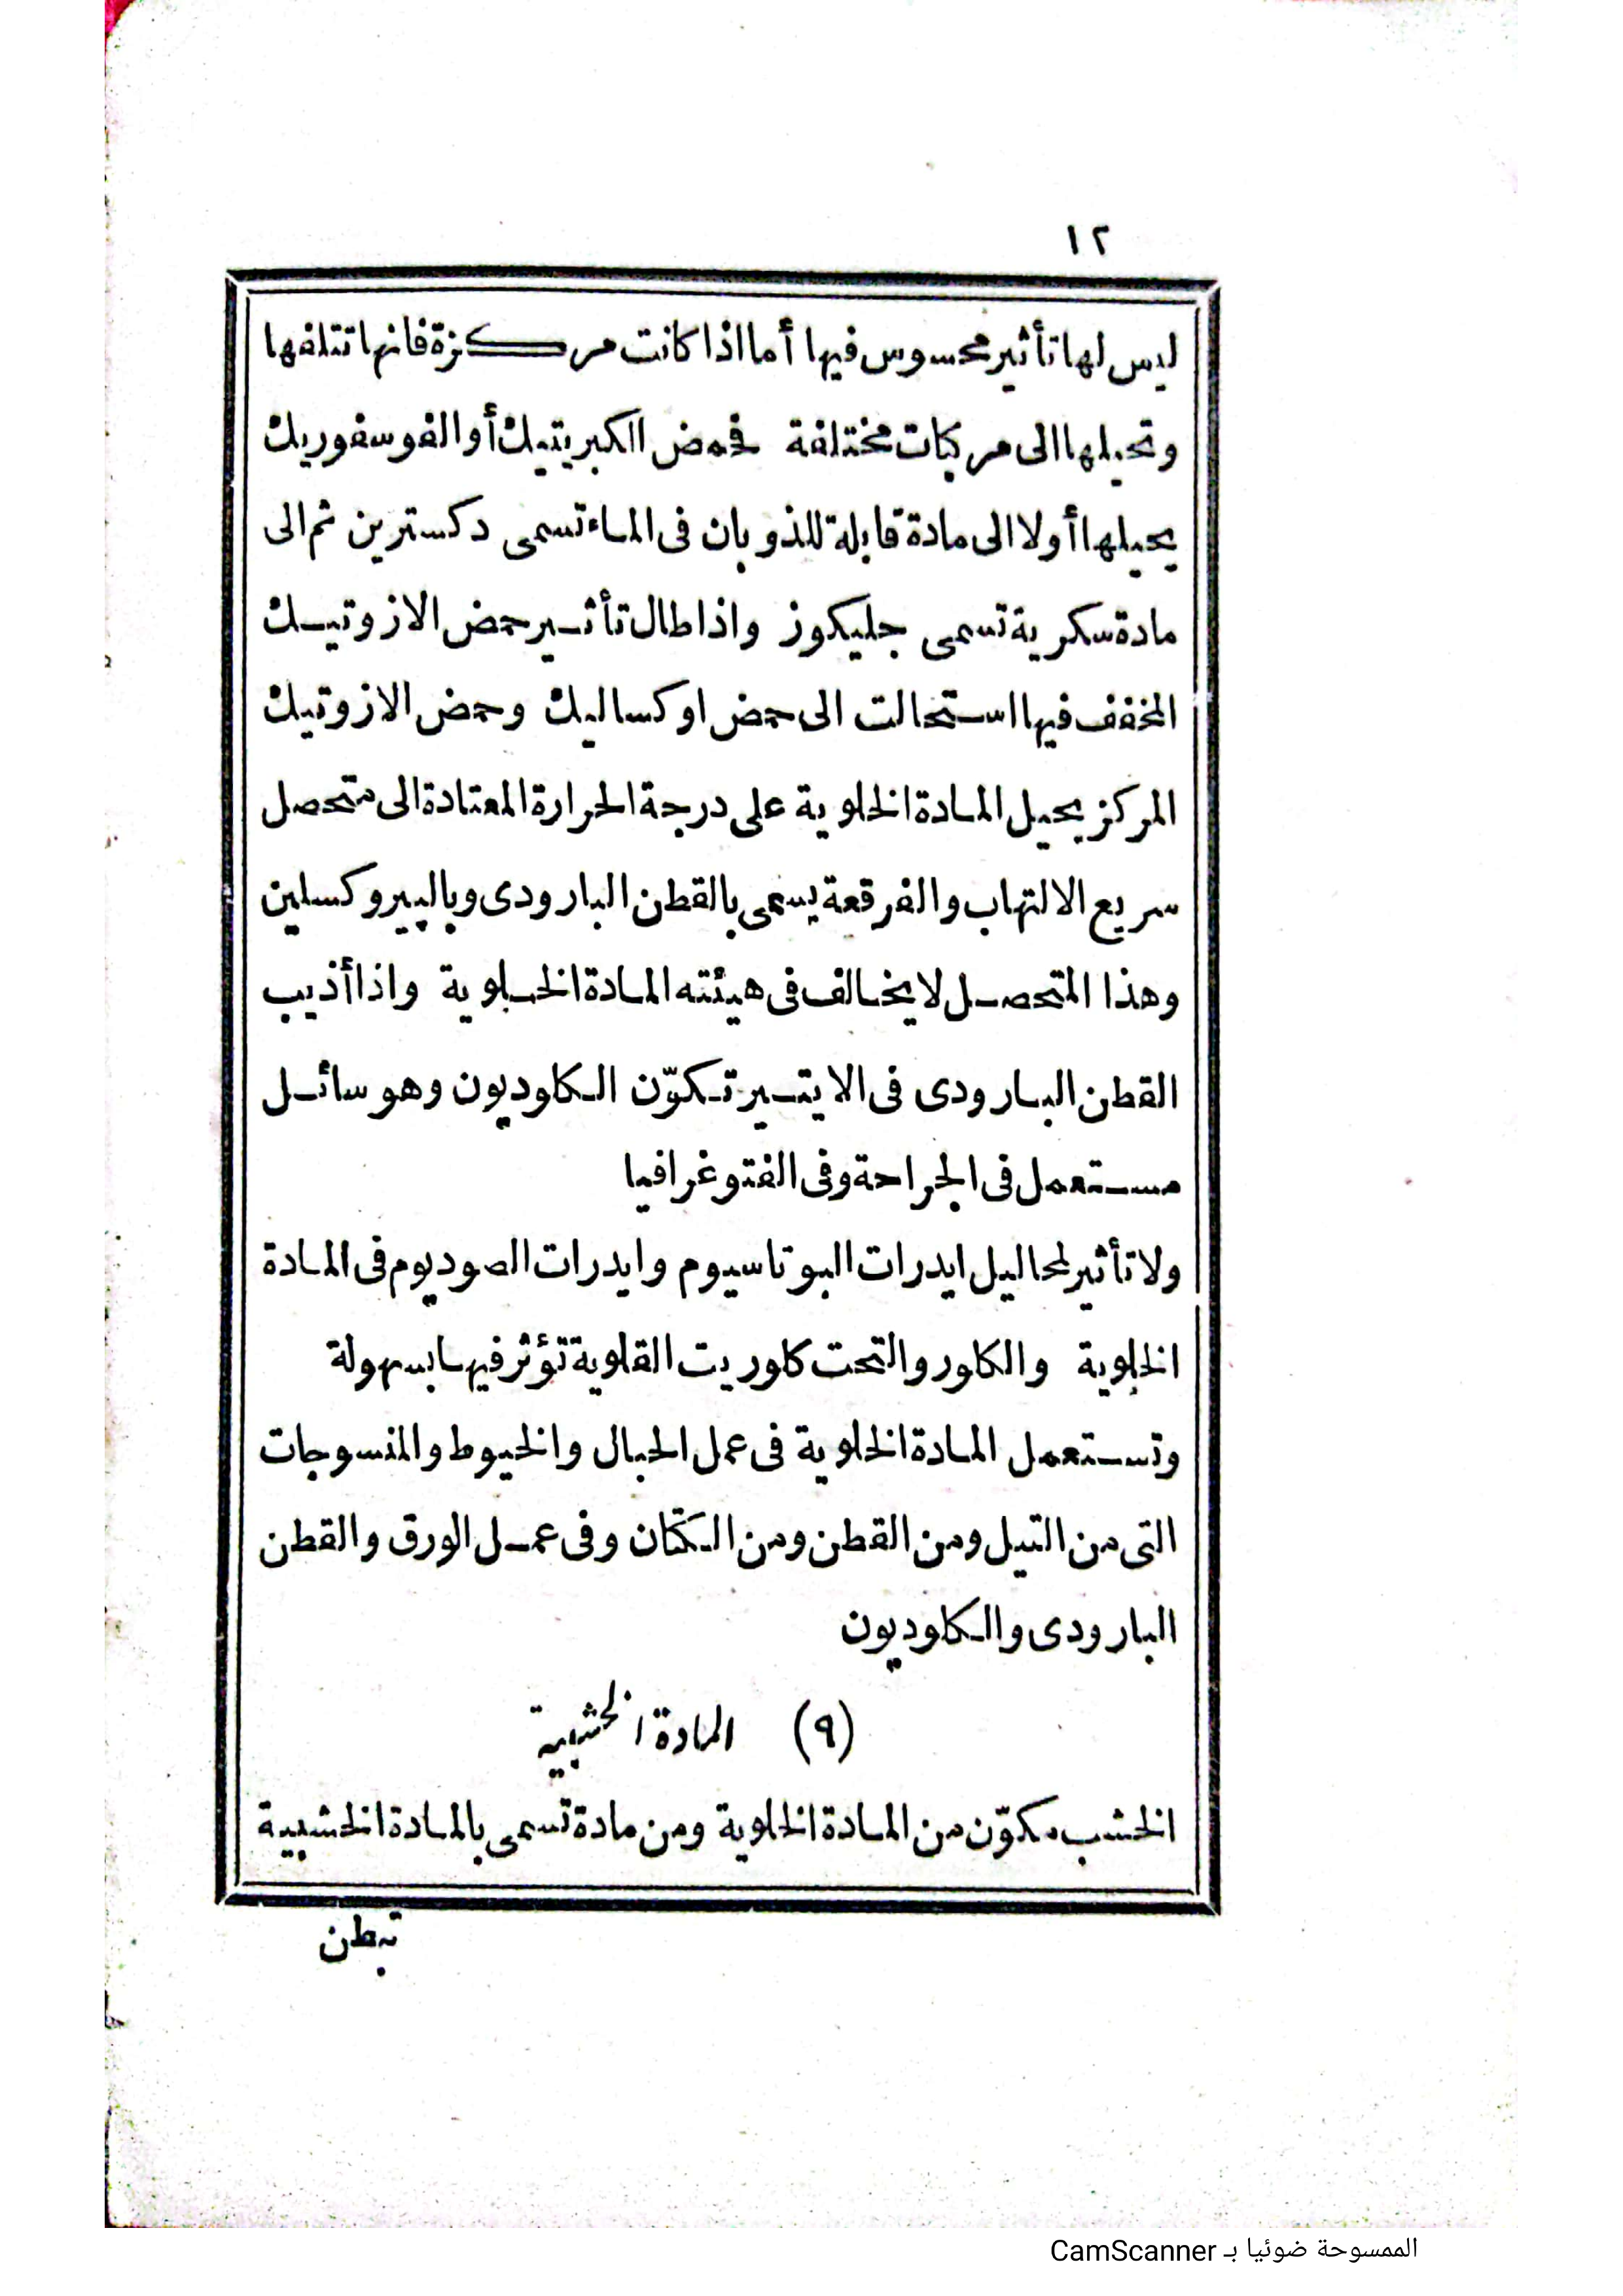 ١٢
ليس لها تأثير محسوس فيها أما اذا كانت مركزة فانها تتلفها
وتحيلها الى مركبات مختلفة فحمض الكبريتيك أو الفوسفوريك
يحيلها أولا الى مادة قابلة للذوبان فى الماء تسمى دكسترين ثم الى
مادة سكرية تسمى جليكوز واذا طال تأثير حمض الازوتيك
المخفف فيها استحالت الى حمض اوكساليك وحمض الازوتيك
المركز يحيل المادة الخلوية على درجة الحرارة المعتادة الى متحصل
سريع الالتهاب والفرقعة يسمى بالقطن البارودى وبالپيروكسلين
وهذا المتحصل لا يخالف فى هيئته المادة الخلوية واذا أذيب
القطن البارودى فى الايتير تكوّن الكلوديون وهو سائل
مستعمل فى الجراحة وفى الفتوغرافيا
ولا تأثير لمحاليل ايدرات البوتاسيوم وايدرات الصوديوم فى المادة
الخلوية والكلور والتحت كلوريت القلوية تؤثر فيها بسهولة
وتستعمل المادة الخلوية فى عمل الحبال والخيوط والمنسوجات
التى من التيل ومن القطن ومن الكتان وفى عمل الورق والقطن
البارودى والكلوديون
(٩) المادة الخشبية
الخشب مكوّن من المادة الخلوية ومن مادة تسمى بالمادة الخشبية
تبطن
الممسوحة ضوئيا بـ CamScanner